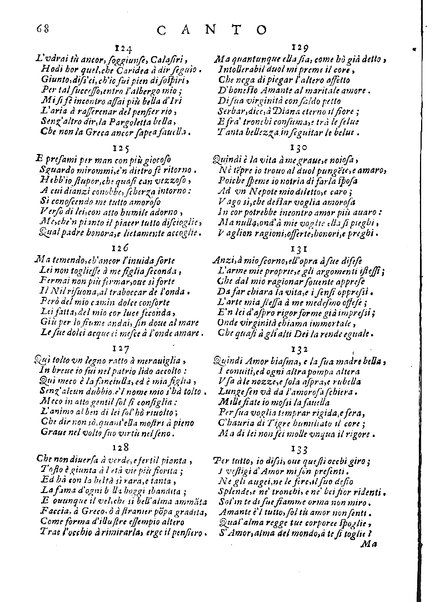 68 CANTO
124
L'vdrai tù ancor, soggiunse, Calasiri,
Hodi hor quel, che Caridea à dir seguio.
Giunto, disi'ei, ch'io fui pien di sospiri,
Per tal successo, entro l'albergo mio;
Mi si fè incontro assai più bella d'Iri
L'aria à rasserenar del pensier rio,
Senz'altro dir, la Pargoletta bella,
Che non la Greca ancor sapea fauella.
125
E presami per man con più giocoso
Sguardo mirommi, e'n dietro fè ritorno.
Hebb'io stupor, che quasi can vizzoso,
A cui dianzi conobbe, scherza intorno:
Si conoscendo me tutto amoroso
Verso di lei, con atto humile adorno,
Me, che'n pianto il piacer tutto disciogli̇e,
Qual padre honora, e lietamente accoglie.
126
Ma temendo, ch'ancor l'inuida sorte
Lei non togliesse à me figlia seconda,
Fermai non più fermar, oue si forte
Il Nil risuona, al traboccar de l'onda.
Però del mio camin dolce consorte
Lei fatta, del mio cor luce seconda,
Giù per lo fiume andai, sin doue al mare
Le sue dolci acque ei mesce à l'onde amare.
127
Qui tolto vn legno ratto à merauiglia,
In breue io fui nel patrio lido accolto:
Qui meco è la fanciulla, ed è mia figlia,
Senz'alcun dubbio, e'l nome mio s'hà tolto.
Meco in atto gentil sol si consiglia:
L'animo al ben di lei sol'hò riuolto;
Che non dir sò, quant'ella mostri à pieno
Graue nel volto suo virtù nel seno.
128
Che non diuersa à verde, e fertil pianta,
Tosto è giunta à l'età vie più fiorita;
Ed hà con la beltà sì rara, e tanta,
La fama d'ogni bellà hoggi sbandita;
E ouunque il vel, che si bell'alma ammāta
Faccia, à Greco, ò à straniér popa gradita,
Come forma d'illustre essempio altero
Trae l'occhio à rimirarla, erge il pensiero.
129
Ma quantunque ella sia, come hò già detto,
Intollerabil duol mi preme il core,
Che nega di piegar l'altero affetto
D'honesto Amante al maritale amore.
Di sua virginità con saldo petto
Serbar, dice, à Diana eterno il fiore;
E frà tronchi consuma, e trà le selue
Tanta bellezza, in seguitar le belue.
130
Quindi è la vita à me graue, e noiosa,
Ne tēpre io trouo al duol pungente, e amaro,
Poiche spesme io notria di farla sposa
Ad vn Nepote mio diletto, e caro;
Vago sì, che destar voglia amorosa
In cor potrebbe incontro amor più auaro:
Ma nulla, ond'à mie voglie ella si pieghi,
Vaglion ragioni, offerte, honori, e preghi.
131
Anzi, à mio scorno, ell'opra à sue difese
L'arme mie proprie, e gli argomenti istessi;
Che dal mio ragionar souente apprese
Da far chiara la vita, e i sensi oppressi.
L'arte mia stessa à me medesmo offese;
E in lei d'aspro rigor forme già impressi;
Onde virginità chiama immortale,
Che quasi à gli alti Dei la rende eguale.
132
Quindi Amor biasma, e la sua madre bella,
I conuiti, ed ogni altra pompa altera
Vsa à le nozze, e sol aspra, e rubella
Lunge sen và da l'amorosa schiera.
Mille fiate io mossi la fauella
Per sua voglia temprar rigida, e fera,
C'hauria di Tigre humiliato il core;
Ma di lei non fei molle vnqua il rigore.
133
Per tutto, io dissi, oue questi occhi giro;
I vestigi d'Amor mi son presenti.
Ne gli augei, ne le fere, il suo desio
Splende, e ne' tronchi, e ne' bei fior ridenti.
Sol'n te di sue fiamme orma non miro.
Amante è'l tutto, sol tù amor non senti.
Qual'alma regge tue corporee spoglie,
S'Amor, alma del mondo, à te si toglie?
Ma